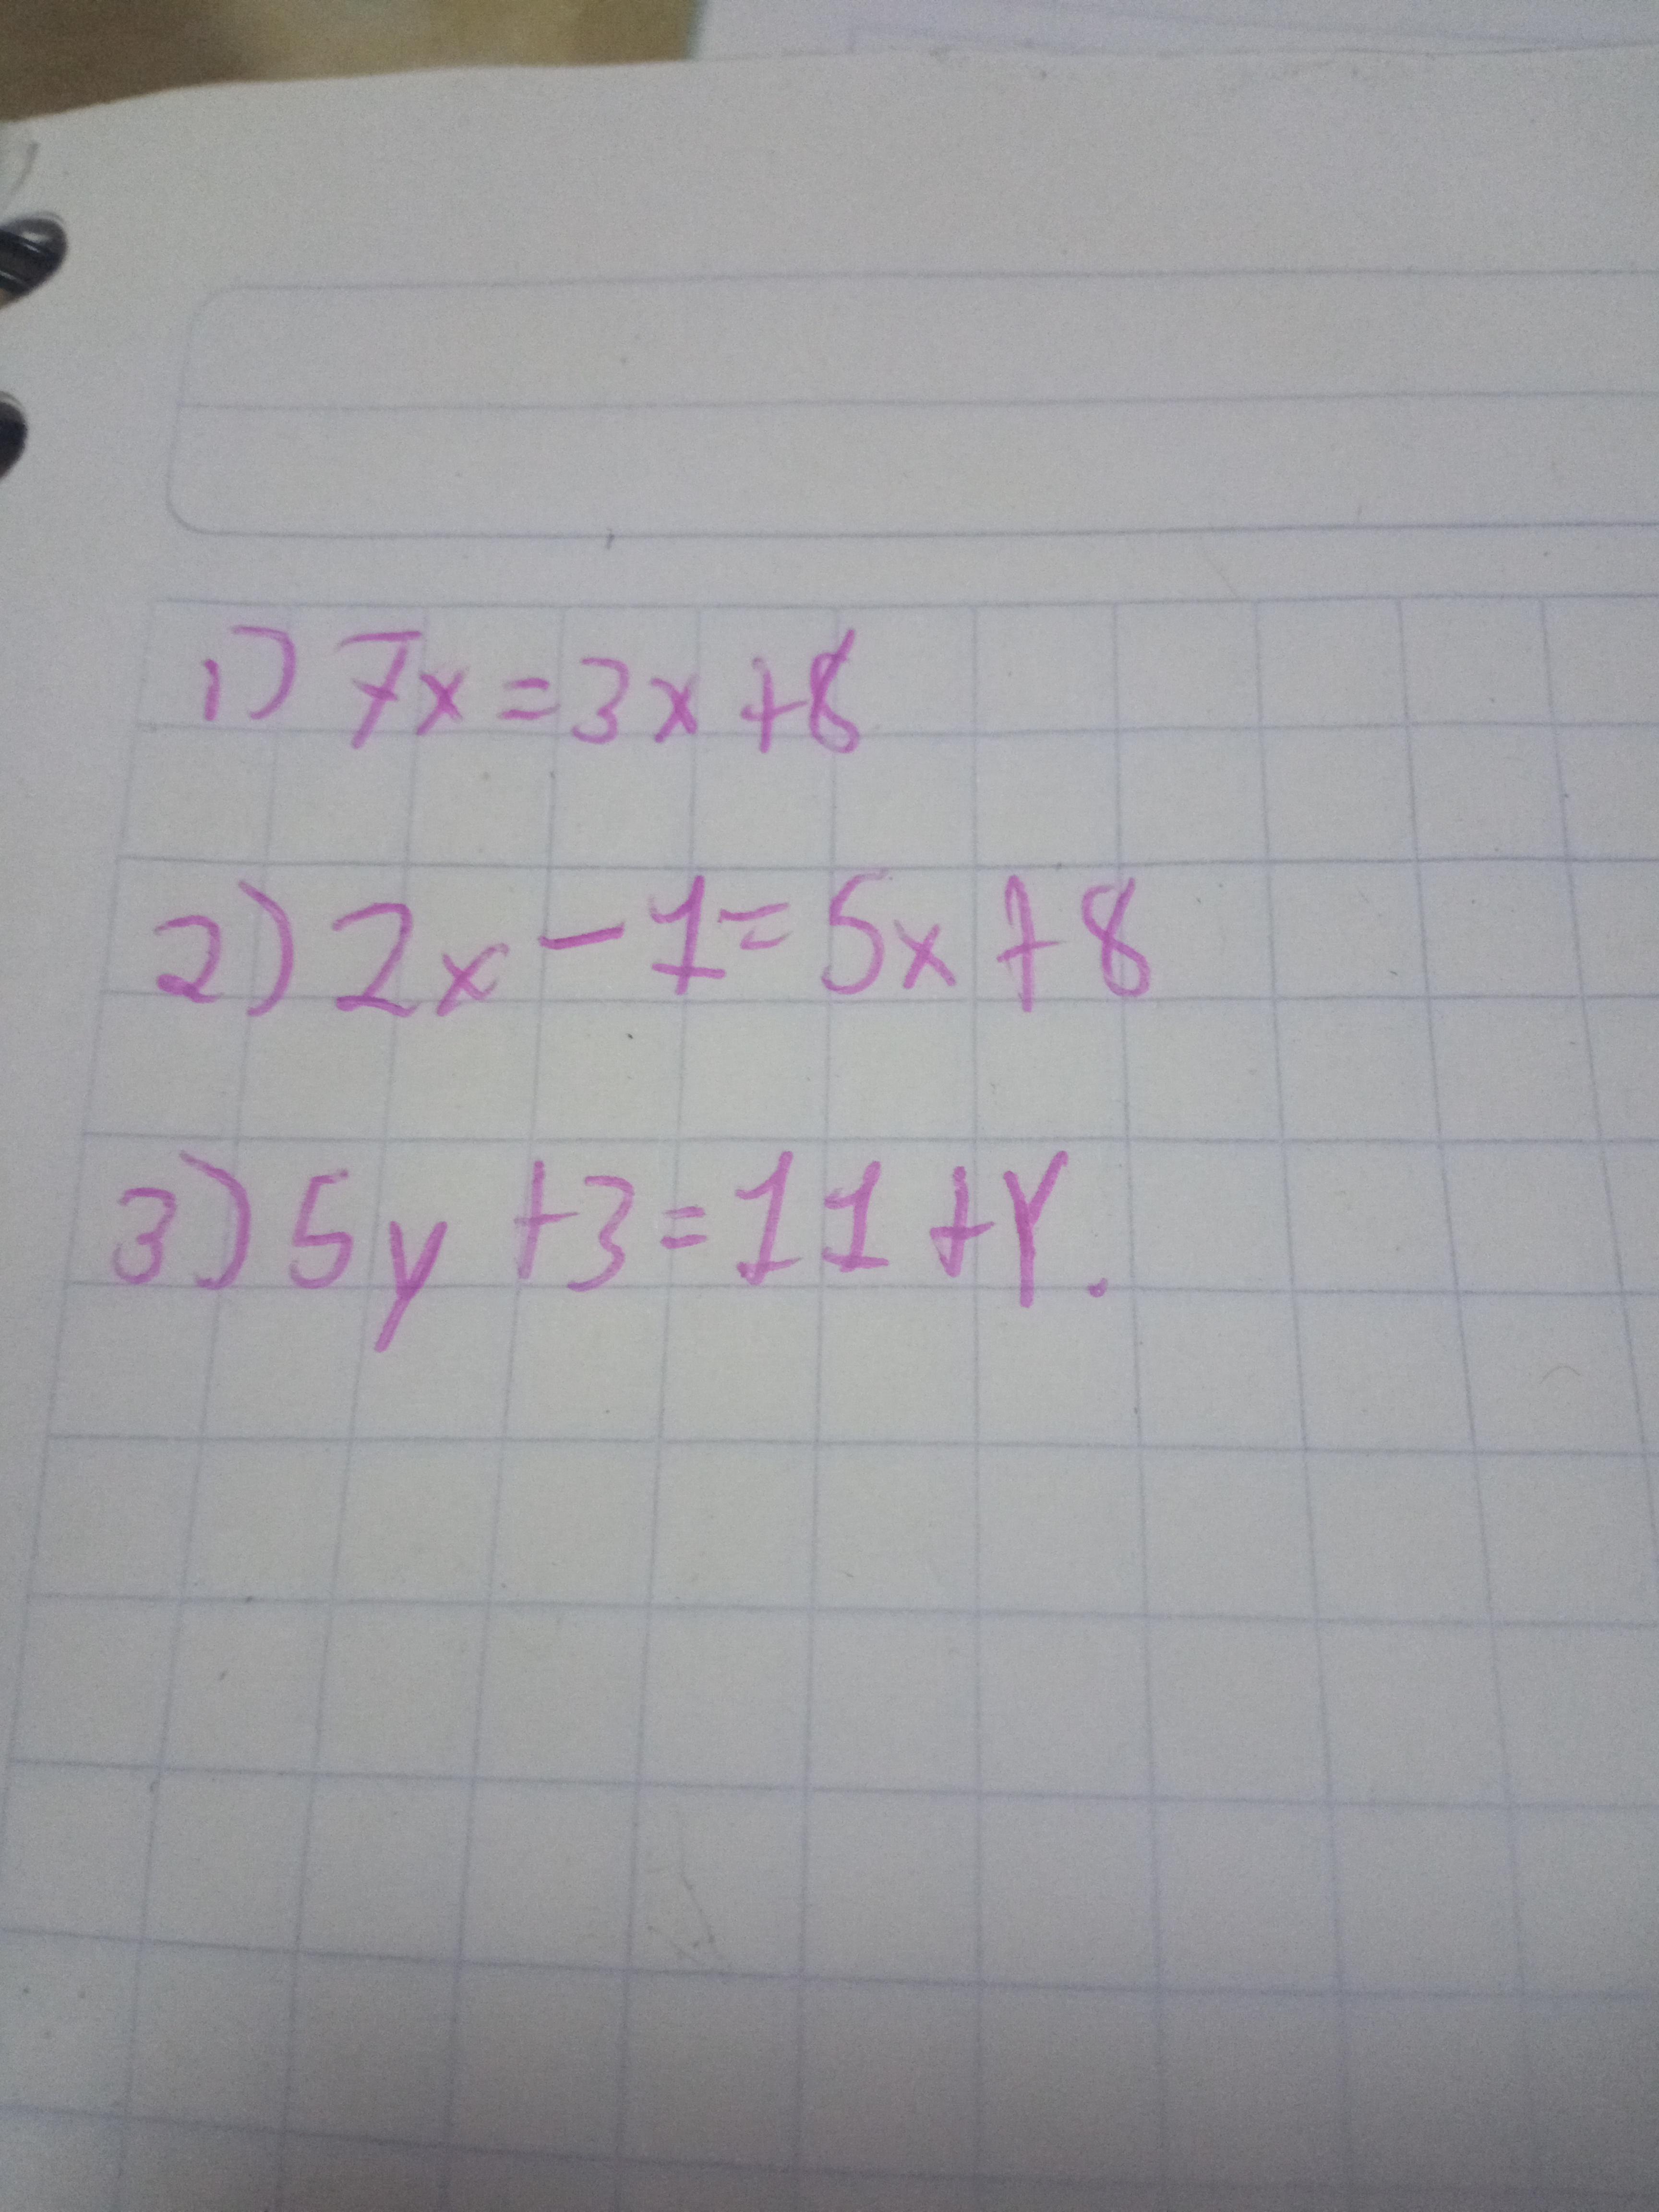 1) 7x = 3x + 8
2) 2x - 1 = 5x + 8
3) 5y + 3 = 11 + y.